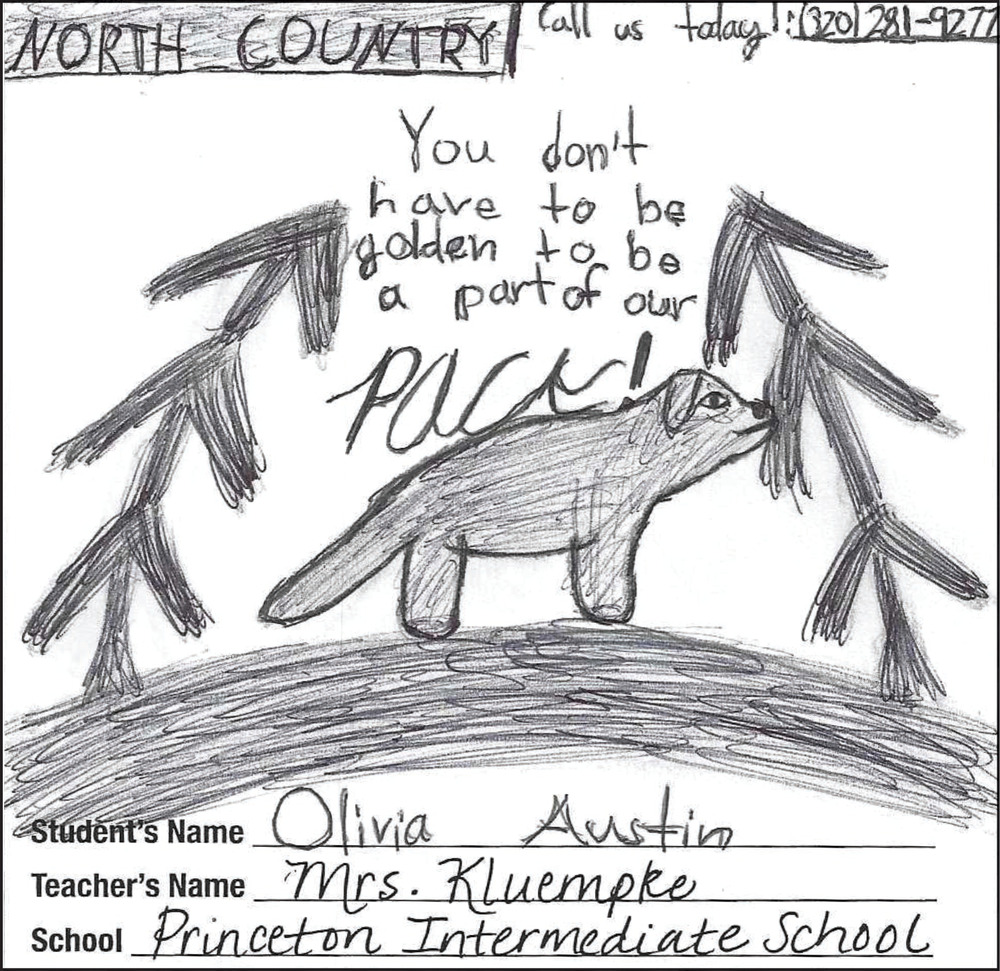 NORTH COUNTRY
Call us today!: (320) 281-9277
You don't
have to be
golden to be
a part of our
PACK!
Student's Name Olivia Austin
Teacher's Name Mrs. Kluempke
School Princeton Intermediate School